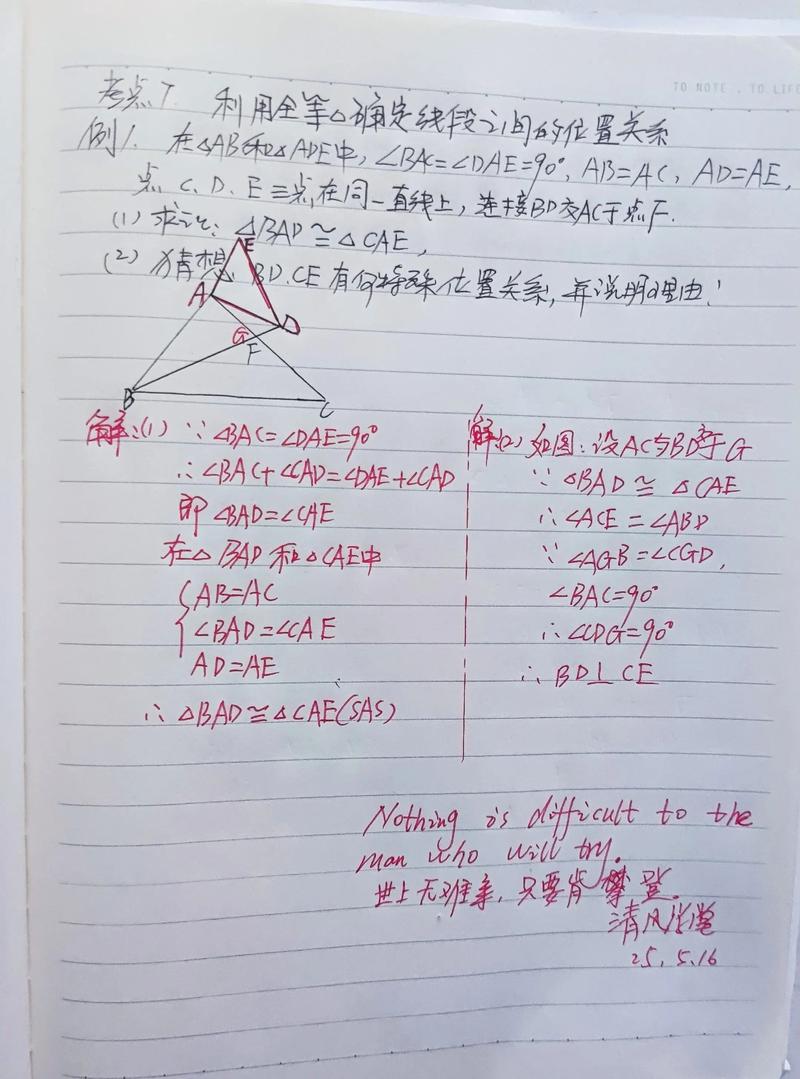 TO NOTE . TO LIFE
考点7. 利用全等△确定线段之间的位置关系
例1. 在△ABC和△ADE中, ∠BAC=∠DAE=90°, AB=AC, AD=AE,
点 C. D. E 三点,在同一直线上, 连接BD交AC于点F.
(1) 求证: △BAD≅△CAE,
(2) 猜想 BD.CE有何特殊位置关系, 并说明理由.
E
A
D
G
F
B
C
解:(1) ∵ ∠BAC=∠DAE=90°
∴ ∠BAC+∠CAD=∠DAE+∠CAD
即 ∠BAD=∠CAE
在△BAD和△CAE中
AB=AC
∠BAD=∠CAE
AD=AE
∴ △BAD≅△CAE(SAS)
解(2) 如图: 设AC与BD交于G
∵ △BAD≅△CAE
∴ ∠ACE=∠ABD
∵ ∠AGB=∠CGD,
∠BAC=90°
∴ ∠CDG=90°
∴ BD⊥CE
Nothing is difficult to the
man who will try.
世上无难事, 只要肯攀登.
清风学堂
25. 5. 16